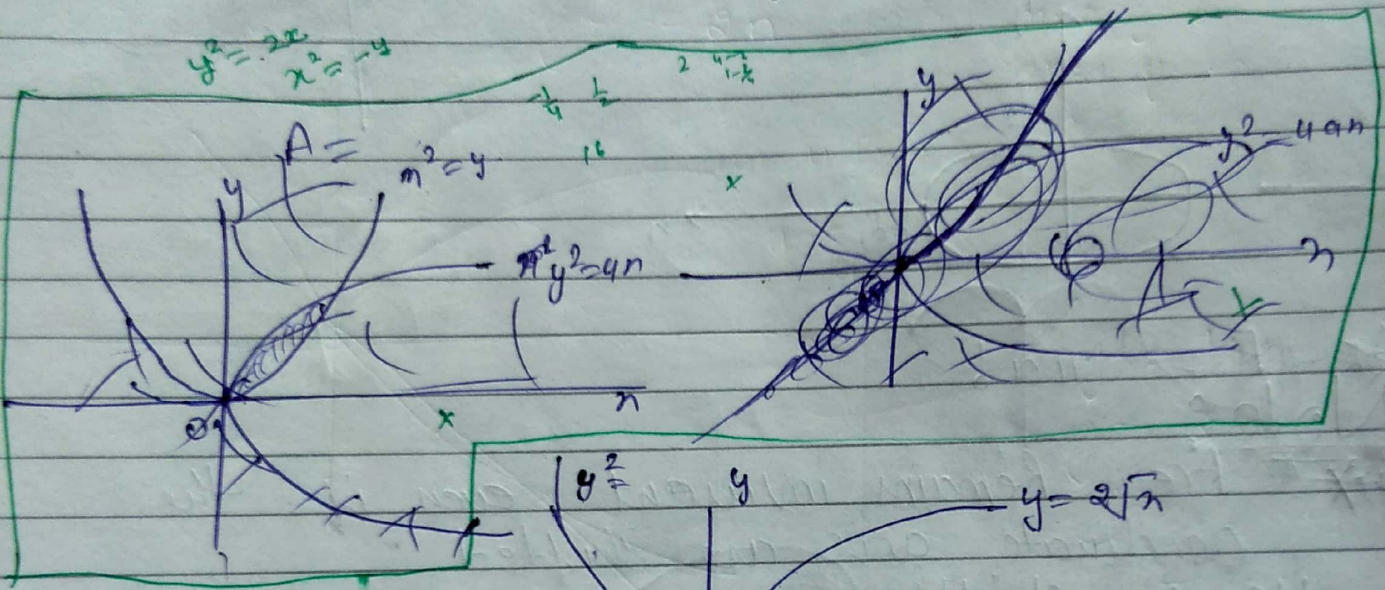 y² = 2x
x² = -y
-1/4 1/2
16
2
A =
x² = y
y
y² = 4x
x
x
O
y
y² = 4ax
x
x
x
y² =
y
y = 2√x